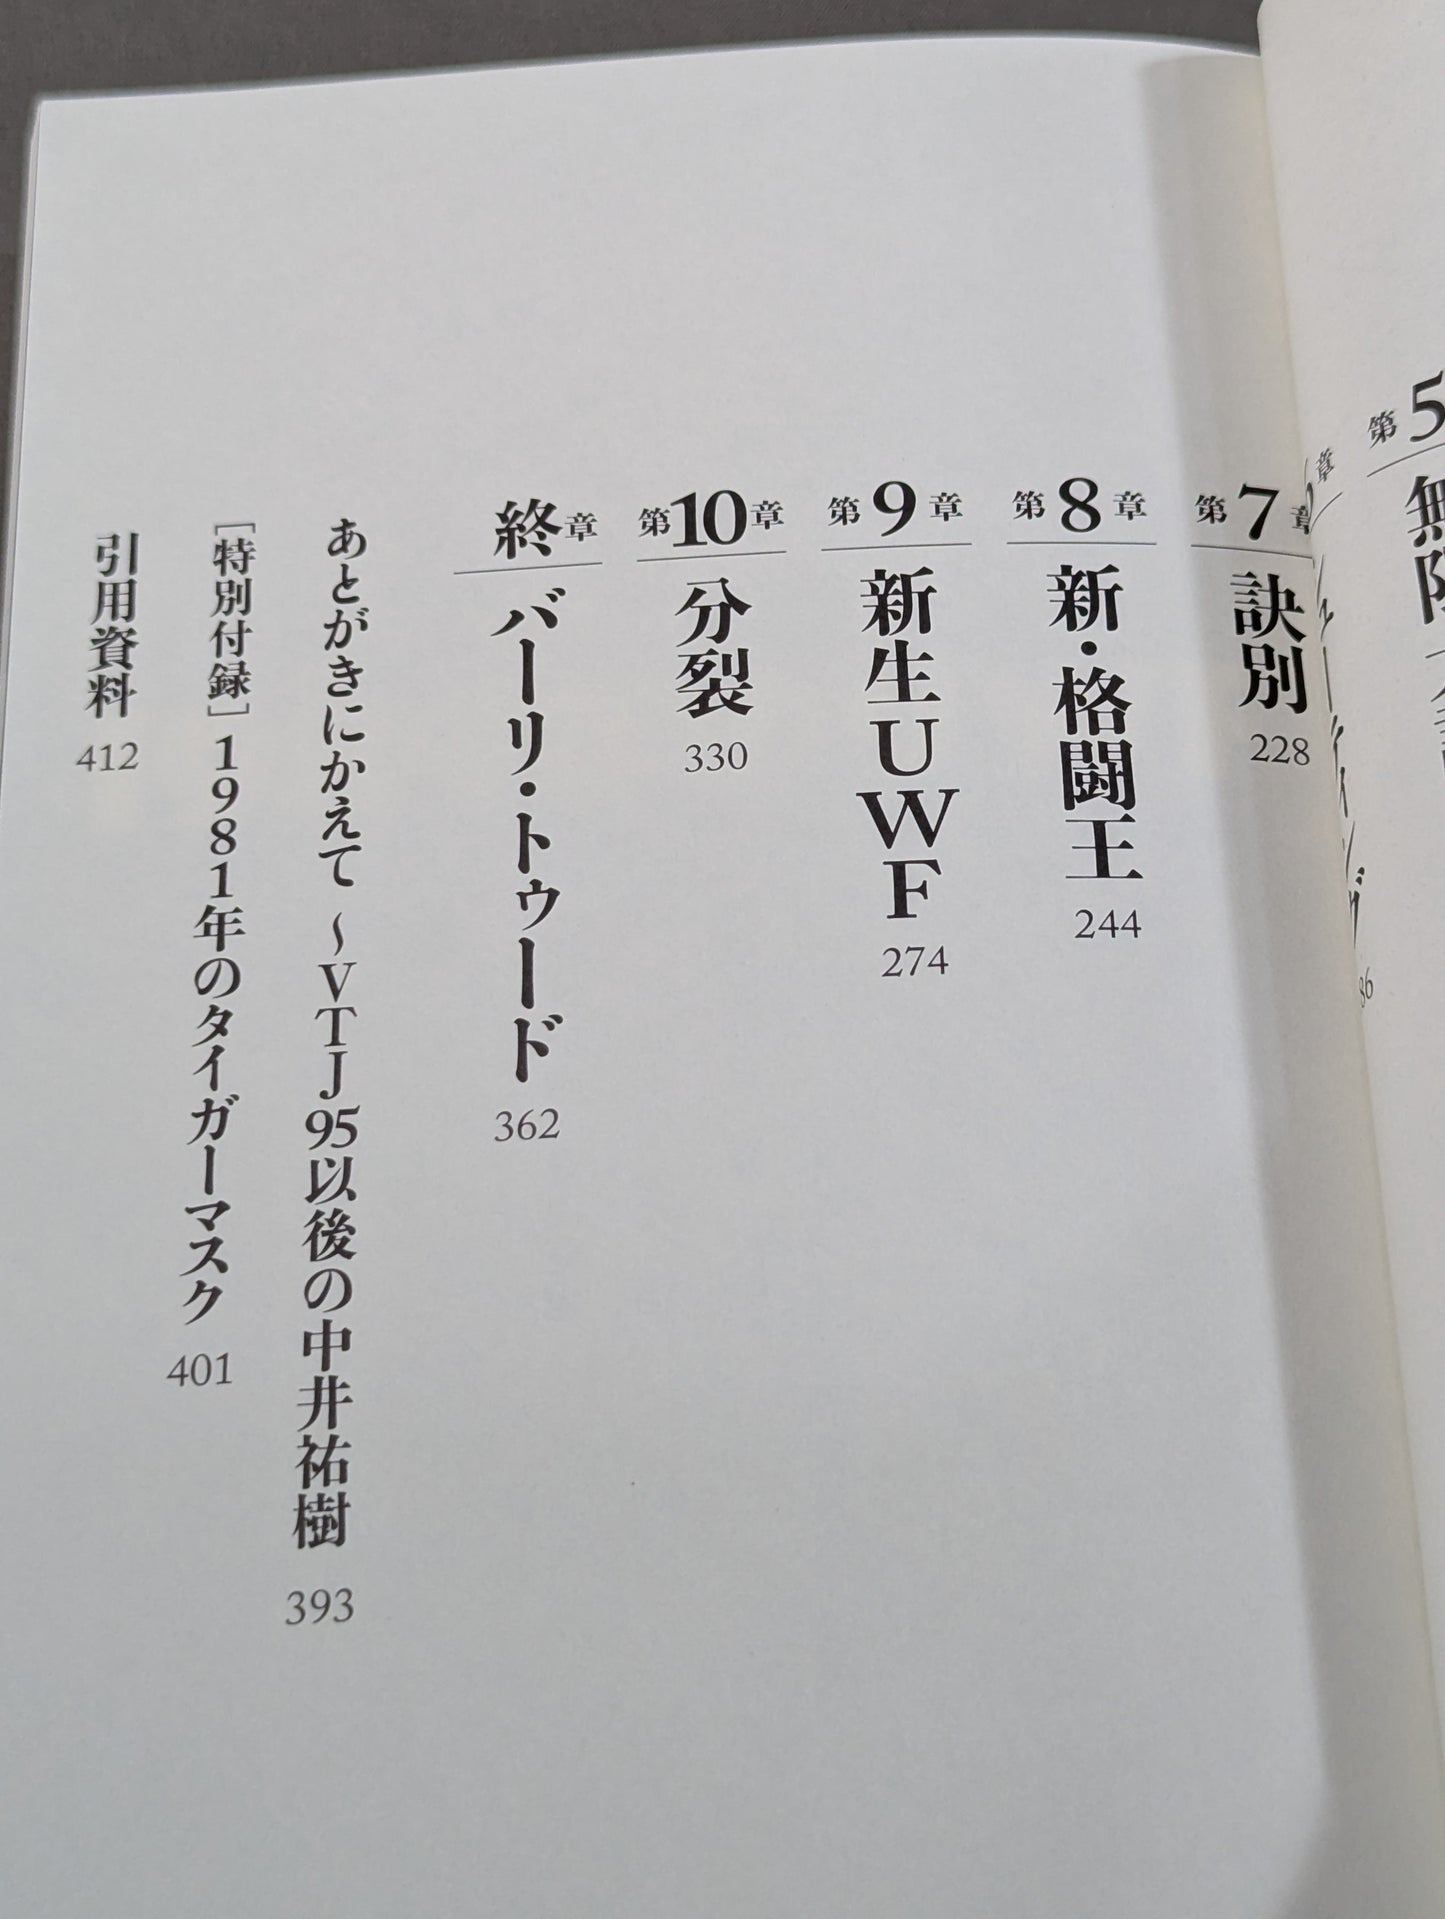 第5章
無限
章
シューティング
86
第7章
訣別
228
第8章
新・格闘王
244
第9章
新生UWF
274
第10章
分裂
330
終章
バーリ・トゥード
362
あとがきにかえて ~VTJ95以後の中井祐樹
393
[特別付録]1981年のタイガーマスク
401
引用資料
412